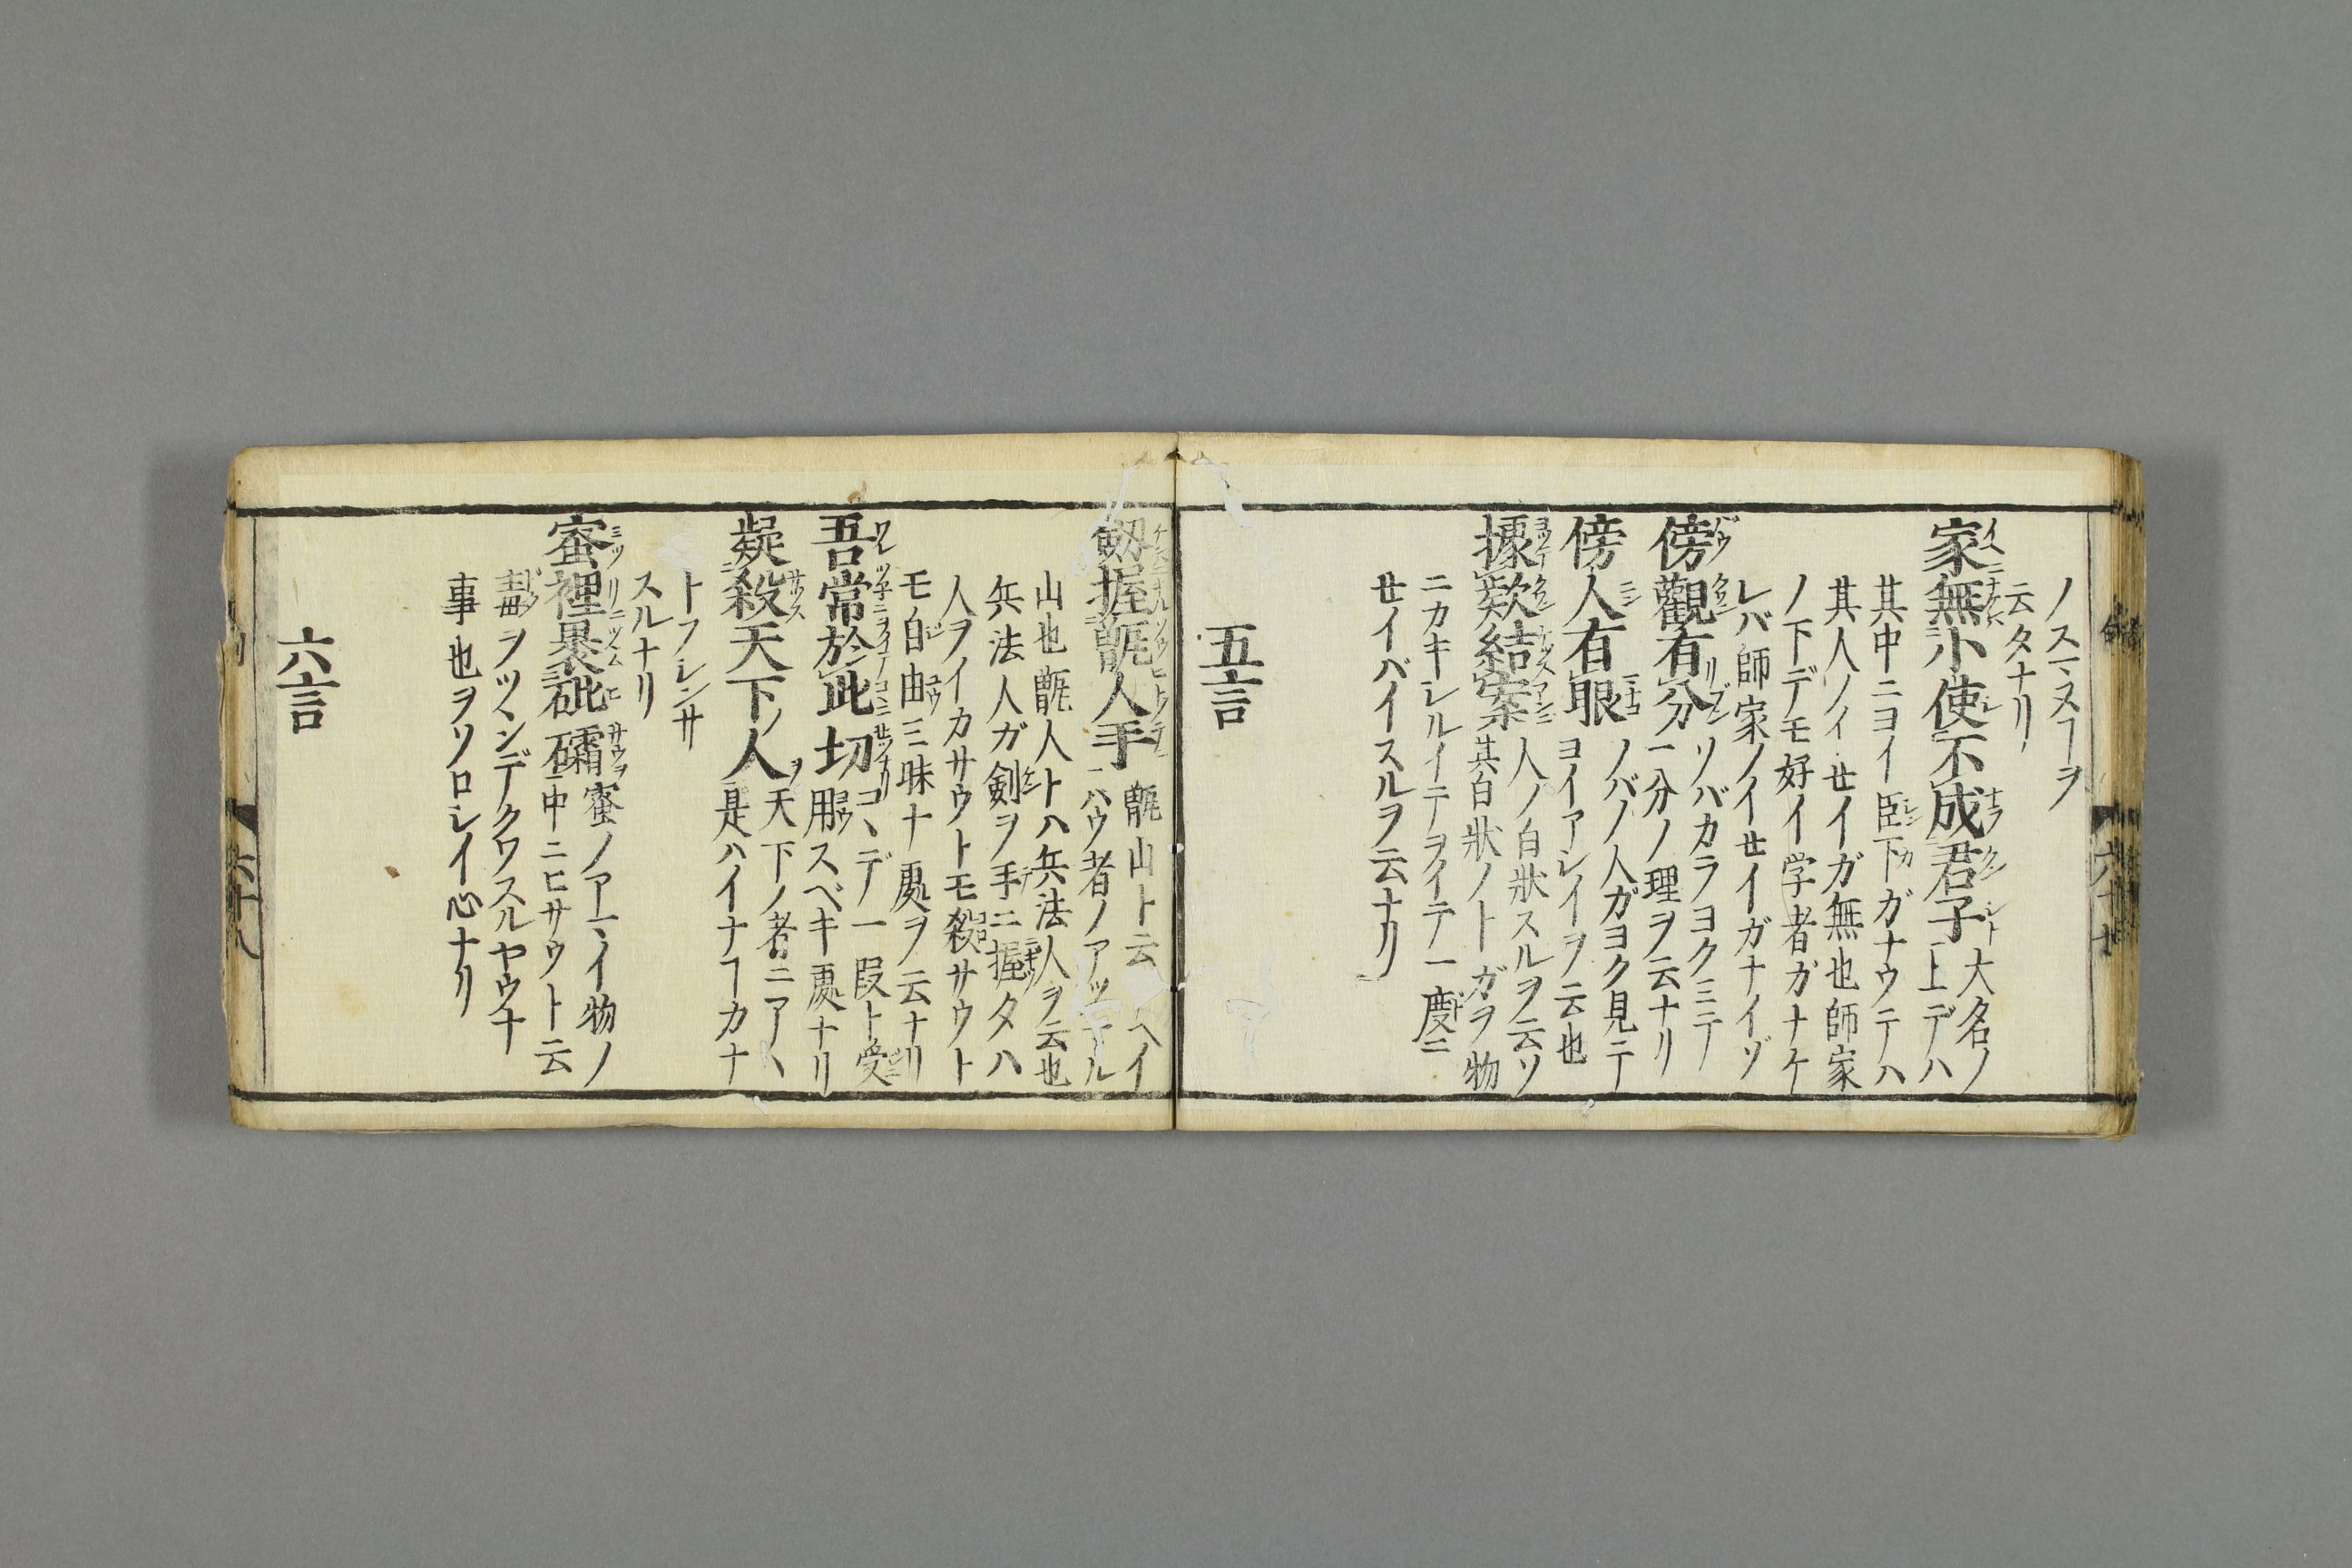 ノスマヌヿヲ
云タナリ
家無小使不成君子 大名ノ
上デハ
其中ニヨイ臣下ガナウテハ
其人ノイセイガ無也師家
ノ下デモ好イ学者ガナケ
レバ師家ノイセイガナイゾ
傍觀有分 ソバカラヨクミテ
一分ノ理ヲ云ナリ
傍人有眼 ノバノ人ガヨク見テ
ヨイアレイヲ云也
據欵結案 人ノ白狀スルヲ云ソ
其白狀ノトガヲ物
ニカキシルイテヲイテ一度ニ
セイバイスルヲ云ナリ
五言
劔握甑人手 甑山ト云 ヘイ
ハウ者ノアツ ル
山也甑人トハ兵法人ヲ云也
兵法人ガ剣ヲ手ニ握タハ
人ヲイカサウトモ殺サウト
モ自由三昧ナ處ヲ云ナリ
吾常於此切 コヽデ一段ト受
用スベキ處ナリ
疑殺天下ノ人 天下ノ者ニアヽ
是ハイナヿカナ
トフシンサ
スルナリ
蜜裡裹砒礵 蜜ノアマイ物ノ
中ニヒサウト云
毒ヲツヽンデクワスルヤウナ
事也ヲソロシイ心ナリ
六言
六十七
六十八